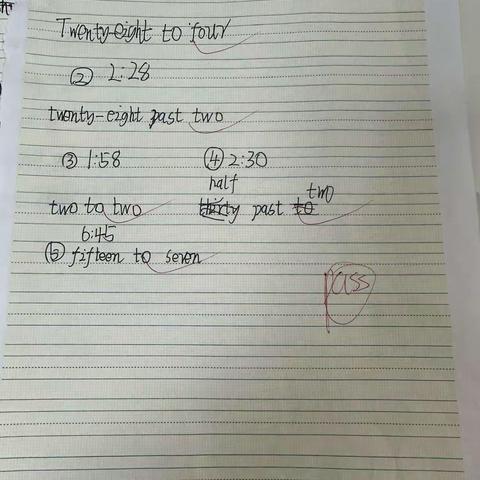 Twenty-eight to four
② 2:28
twenty-eight past two
③ 1:58 ④ 2:30
half two
two to two thirty past to
6:45
⑤ fifteen to seven
pass